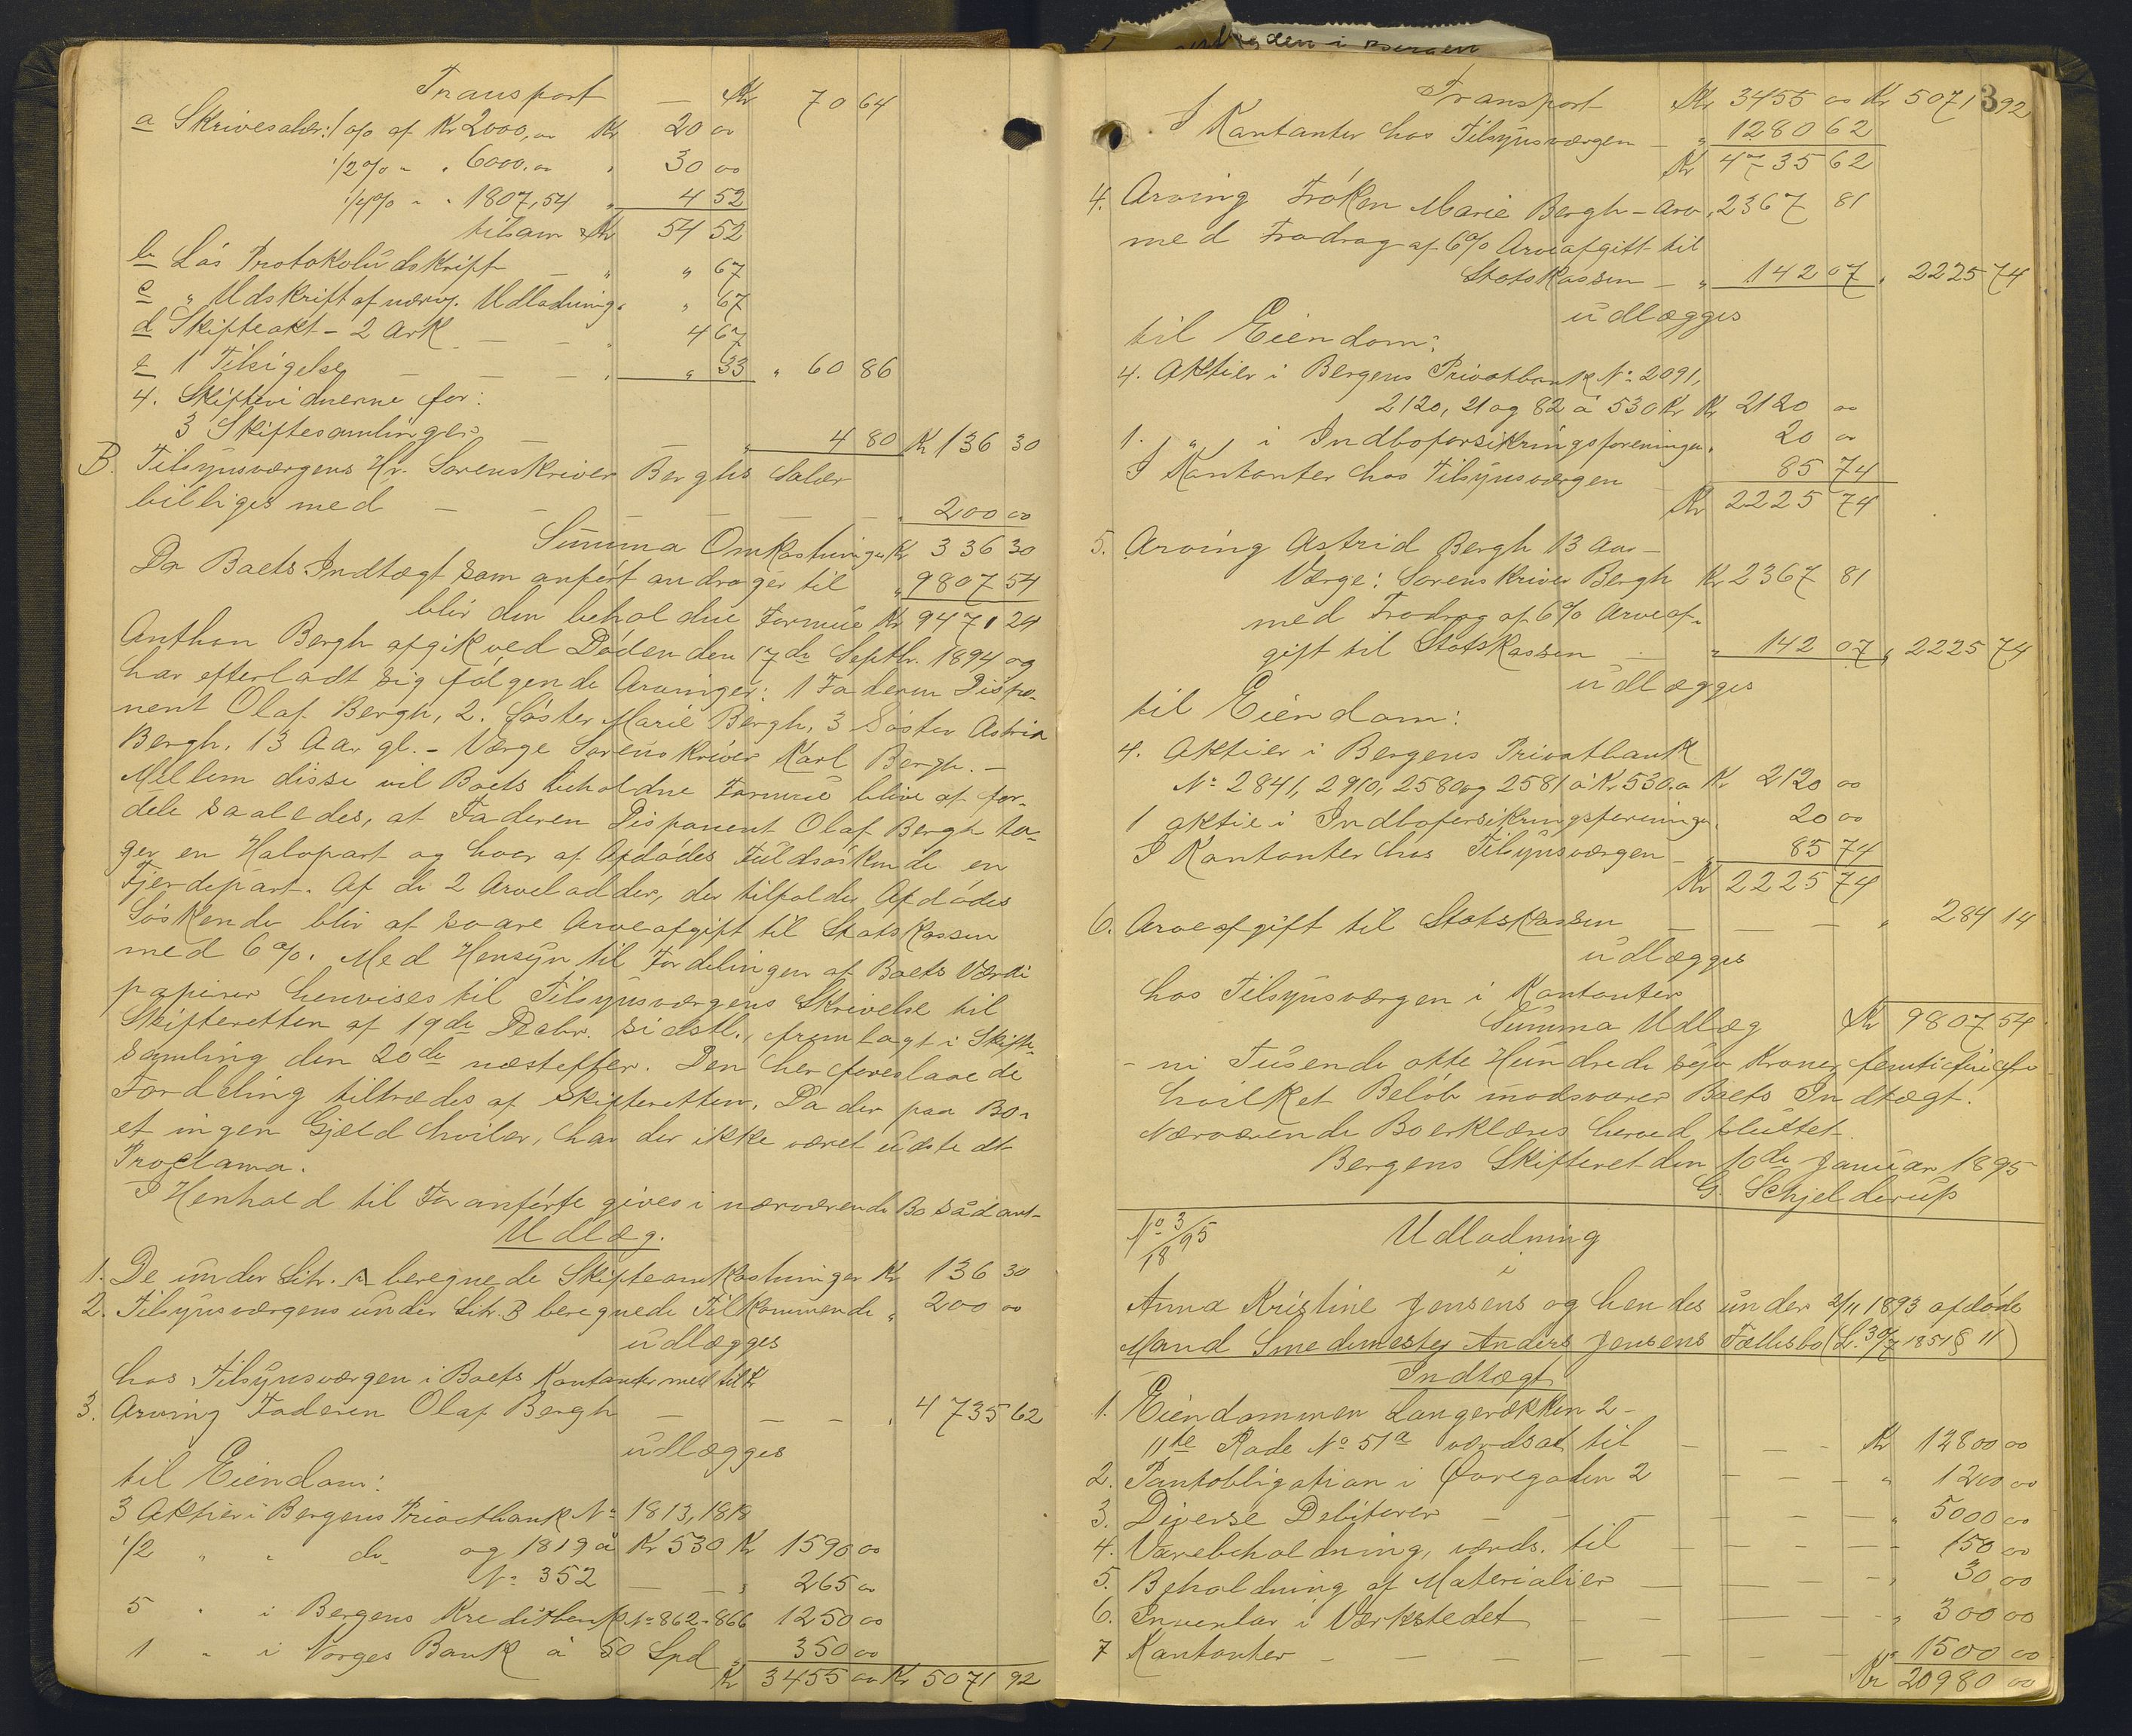 Transport — Kr 70 64
a Skrivesalær: 1 o/o af Kr 2000,00 Kr 20 00
1/2 o/o " " 6000.00 " 30 00
1/4 o/o " " 1807,54 " 4 52
tilsam Kr 54 52
b Løs Protokoludskrift — " " 67
c " Udskrift af nærv. Udlodning " " 67
d Skifteakt - 2 Ark — — " 4 67
e 1 Tilsigelse — — — " " 33 " 60 86
4. Skiftevidnerne for:
3 Skiftesamlinger — — " 4 80 Kr 136 30
B. Tilsynsværgens Hr. Sorenskriver Berghs Salær
billiges med — — — — — — " 200 00
Summa Omkostninger Kr 336 30
Da Boets Indtægt som anført andrager til " 9807 54
blir den beholdne Formue Kr 9471 24
Anthon Bergh afgik ved Døden den 17de Septbr. 1894 og
har efterladt sig følgende Arvinger: 1 Faderen Dispo-
nent Olaf Bergh, 2. Søster Marie Bergh, 3 Søster Astrid
Bergh, 13 Aar gl. - Værge Sorenskriver Karl Bergh. —
Mellem disse vil Boets beholdne Formue blive at for-
dele saaledes, at Faderen Disponent Olaf Bergh ta-
ger en Halvpart og hver af Afdødes Fuldsøskende en
Fjerdepart. Af de 2 Arvelodder, der tilfalder Afdødes
Søskende blir at svare Arveafgift til Statskassen
med 6 o/o. Med Hensyn til Fordelingen af Boets Værdi
papirer henvises til Tilsynsværgens Skrivelse til
Skifteretten af 19de Decbr. sidstl., fremlagt i Skifte-
samling den 20de næstefter. Den her foreslaaede
Fordeling tiltrædes af Skifteretten. Da der paa Bo-
et ingen Gjæld hviler, har der ikke været udstedt
Proclama.
I Henhold til Foranførte gives i nærværende Bo sådant
Udlæg.
1. De under Litr. A beregnede Skifteomkostninger Kr 136 30
2. Tilsynsværgens under Litr. B beregnede Tilkommende " 200 00
udlægges
hos Tilsynsværgen i Boets Kontanter med tilf
3. Arving Faderen Olaf Bergh — — — " 4735 62
udlægges
til Eiendom:
3 Aktier i Bergens Privatbank No 1813, 1818
og 1819 à Kr 530 Kr 1590 00
1/2 " " do No 352 — — " 265 00
5 " i Bergens Kreditbank No 862-866 1250 00
1 " i Norges Bank à 50 Spd " 350 00
Kr 3455 00 Kr 5071 92
3
Transport Kr 3455 00 Kr 5071 92
I Kontanter hos Tilsynsværgen — " 1280 62
Kr 4735 62
4. Arving Frøken Marie Bergh - Arv " 2367 81
med Fradrag af 6 o/o Arveafgift til
Statskassen — " 142 07 " 2225 74
udlægges
til Eiendom:
4. Aktier i Bergens Privatbank No 2091,
2120, 21 og 82 à 530 Kr Kr 2120 00
1. " i Indboforsikringsforeningen " 20 00
I Kontanter hos Tilsynsværgen — 85 74
Kr 2225 74
5. Arving Astrid Bergh 13 Aar —
Værge: Sorenskriver Bergh Kr 2367 81
med Fradrag af 6 o/o Arveaf-
gift til Statskassen — " 142 07 " 2225 74
udlægges
til Eiendom:
4. Aktier i Bergens Privatbank
No 2841, 2910, 2580 og 2581 à Kr 530.00 Kr 2120 00
1 aktie i Indboforsikringsforeningen " 20 00
I Kontanter hos Tilsynsværgen — " 85 74
Kr 2225 74
6. Arveafgift til Statskassen — — — " 284 14
udlægges
hos Tilsynsværgen i Kontanter
Summa Udlæg Kr 9807 54
- ni Tusende otte Hundrede syv Kroner femtifire Øre
hvilket Beløb modsvarer Boets Indtægt.
Nærværende Bo erklæres herved sluttet.
Bergens Skifteret den 10de Januar 1895
G. Schjelderup
No 3/1895 Udlodning
i
Anna Kristine Jensens og hendes under 2/11 1893 afdøde
Mand Smedemester Anders Jensens Fællesbo (L. 30/7 1851 § 11)
Indtægt
1. Eiendommen Langerækken 2 —
11te Rode No 51a værdsat til — — — Kr 12800 00
2. Pantobligation i Øvregaden 2 — — — " 1200 00
3. Diverse Debitorer — — — — — " 5000 00
4. Varebeholdning, værds. til — — — — 150 00
5. Beholdning af Materialier — — — — " 30 00
6. Inventar i Værkstedet — — — — " 300 00
7 Kontanter — — — — — — " 1500 00
Kr 20980 00